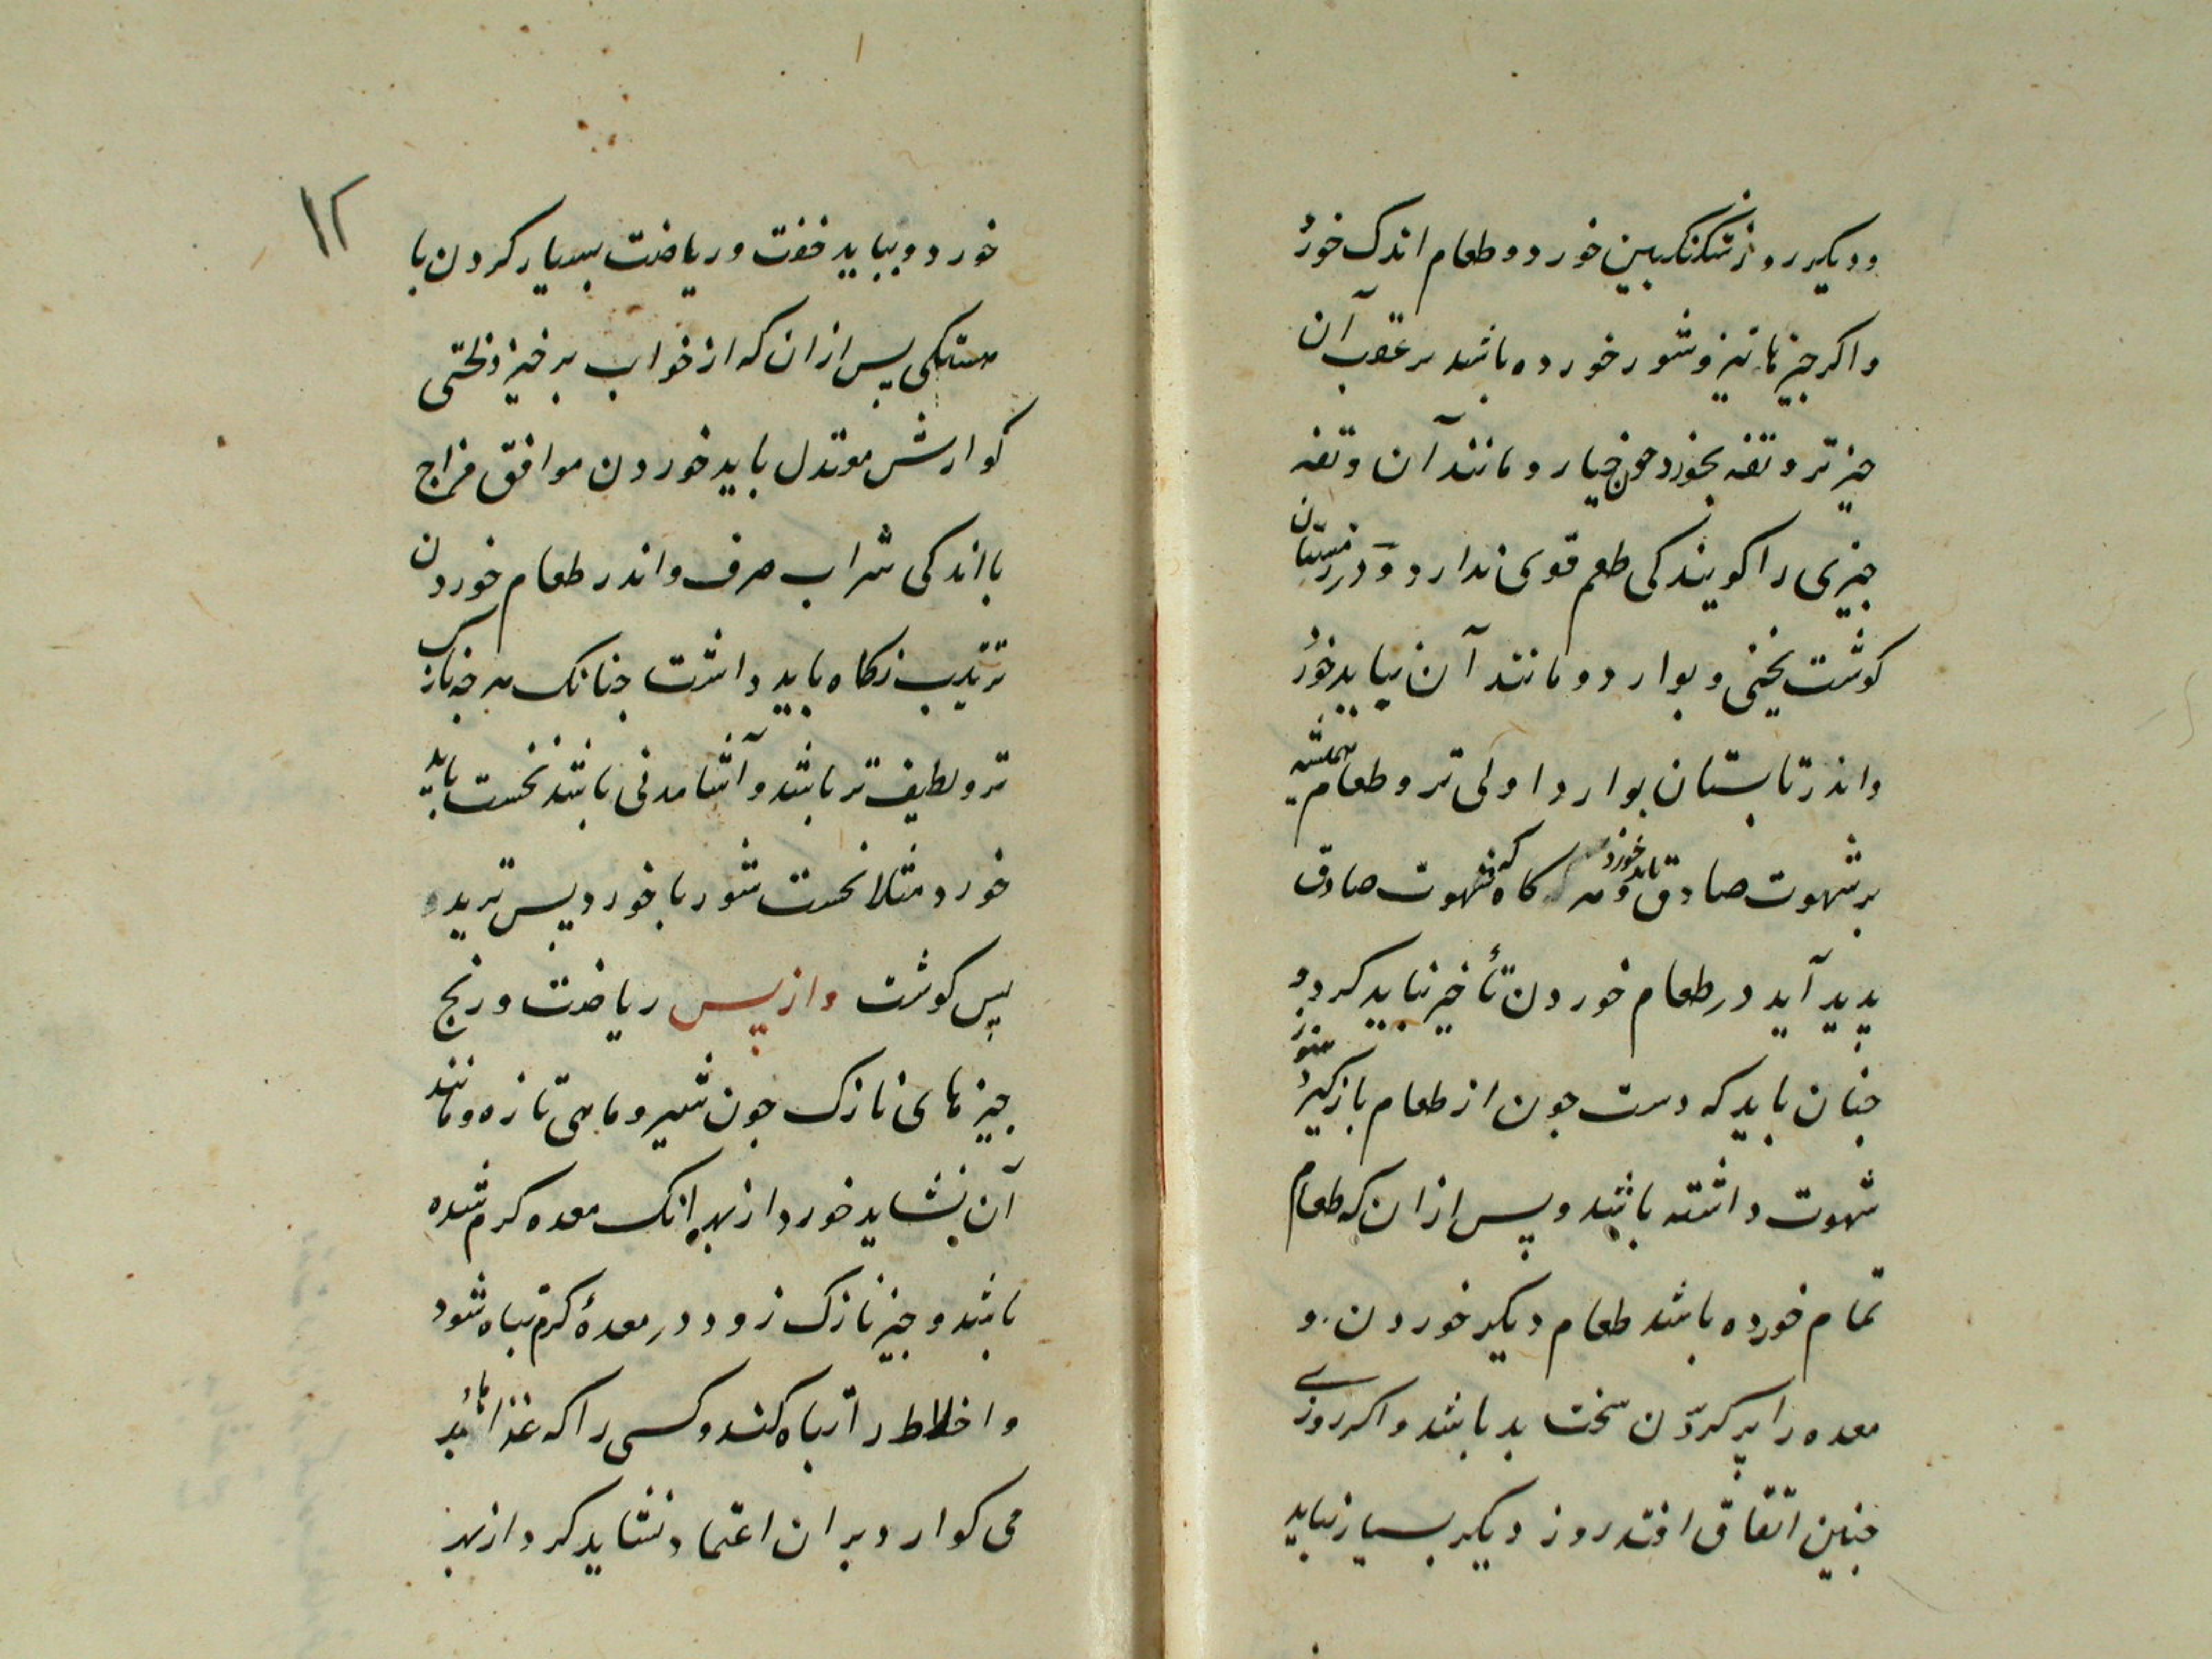 ودیکر روز سکنکبین خورد و طعام اندک خورد
واکر جیزها تیز وشور خورده باشد بر عقب آن
جیز تر وتفه بخورد جون خیار ومانند آن وتفه
جیزی را کویند کی طعم قوی ندارد ودر زمستان
کوشت یخنی وبوارد ومانند آن نباید خورد
واندر تابستان بوارد اولی تر وطعام همیشه
بر شهوت صادق باید خورد وهر کاه که شهوت صادق
پدید آید در طعام خوردن تأخیر نباید کرد و
جنان باید که دست جون از طعام بازکیرد هنوز
شهوت داشته باشد وپس ازان که طعام
تمام خورده باشد طعام دیکر خوردن و
معده را پر کردن سخت بد باشد واکر روزی
جنین اتفاق افتد روز دیکر بسیار نباید
۱۲
خورد وبباید خفت وریاضت بسیار کردن با
هستکی پس ازان که از خواب برخیزد لختی
کوارش معتدل باید خوردن موافق مزاج
با اندکی شراب صرف واندر طعام خوردن
ترتیب نکاه باید داشت جنانک هر جه نازک
تر ولطیف تر باشد وآشامدنی باشد نخست باید
خورد مثلا نخست شوربا خورد پس ترید و
پس کوشت وازپس ریاضت ورنج
جیزهای نازک جون شیر وماهی تازه ومانند
آن نشاید خورد از بهر انک معده کرم شده
باشد وجیز نازک زود در معدهٔ کرم تباه شود
واخلاط را تباه کند وکسی را که غذاهاء بد
می کوارد بران اعتماد نشاید کرد از بهر